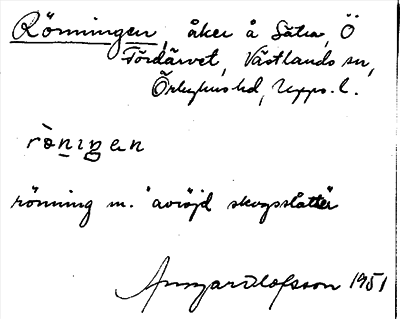 Rönningen, åker å Sätra, Ö
Fördärvet, Västlands sn,
Örbyhus hd, Upps. l.
rò̤nıŋen
rönning m. "avröjd skogsslätt"
Olofsson 1951